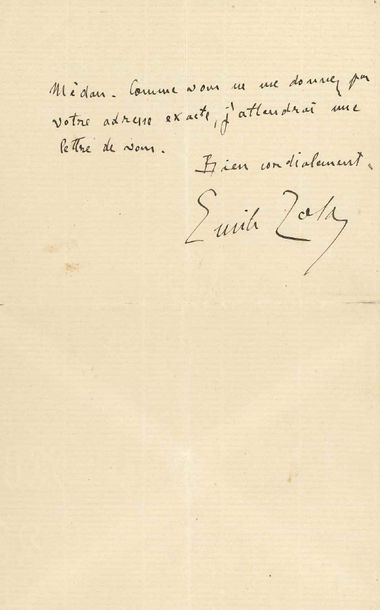 Médan. Comme vous ne me donnez pas
votre adresse exacte, j'attendrai une
lettre de vous.
Bien cordialement.
Emile Zola